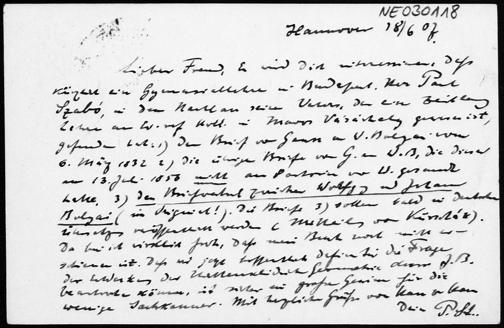 NE030118
Hannover 18/6 07
Lieber Freund, Es wird Dich interessieren, dass
kürzlich ein Gymnasiallehrer in Budapest, Herr Paul
Szabó, in dem Nachlass seines Vaters, der eine Zeitlang
Lehrer am ev. ref. Koll. in Maros Vásárhely gewesen ist,
gefunden hat: 1) den Brief von Gauss an W. Bolyai vom
6. März 1832 2) die übrigen Briefe von G. an W. B., die dieser
am 13. Jul. 1856 nicht an Sartorius von W. gesandt
hatte, 3) den Briefwechsel zwischen Wolfg. und Johann
Bolyai (im Original!). Die Briefe 3) sollen bald in deutscher
veröffentlicht werden (Mitteilg von Kürschák).
Da bin ich wirklich froh, dass mein Buch noch nicht er-
schienen ist. Dass wir jetzt hoffentlich definitiv die Frage
der Entdeckung der Nichteuklidischen Geometrie durch J. B.
beantworten können, ist sicher ein grosser Gewinn für die
wenige Sachkenner. Mit herzlichen Grüssen von Haus zu Haus
Dein P. St.